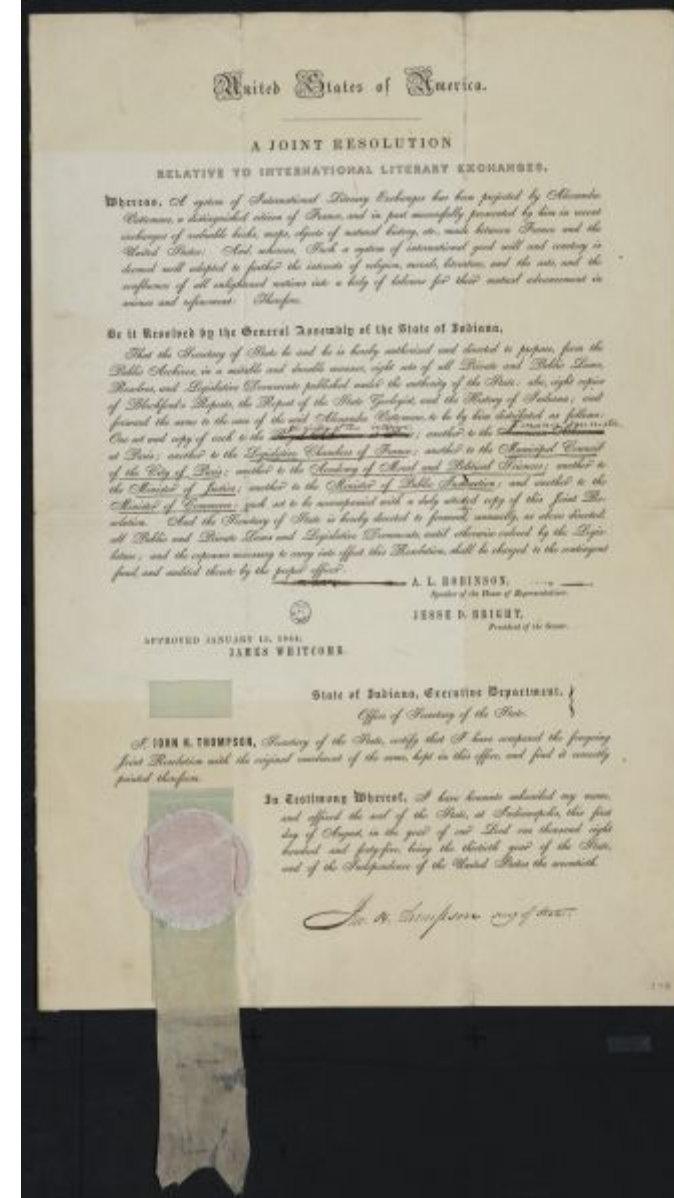 United States of America.
A JOINT RESOLUTION
RELATIVE TO INTERNATIONAL LITERARY EXCHANGES.
Whereas, A system of International Literary Exchanges has been projected by Alexandre
Vattemare, a distinguished citizen of France, and in part successfully prosecuted by him in recent
exchanges of valuable books, maps, objects of natural history, etc., made between France and the
United States: And, whereas, Such a system of international good will and courtesy is
deemed well adapted to further the interests of religion, morals, literature, and the arts, and the
confluence of all enlightened nations into a body of laborers for their mutual advancement in
science and refinement: Therefore,
Be it Resolved by the General Assembly of the State of Indiana,
That the Secretary of State be and he is hereby authorized and directed to prepare, from the
Public Archives, in a suitable and durable manner, eight sets of all Private and Public Laws,
Resolves, and Legislative Documents published under the authority of the State; also, eight copies
of Blackford's Reports, the Report of the State Geologist, and the History of Indiana; and
forward the same to the care of the said Alexandre Vattemare, to be by him distributed as follows:
One set and copy of each to the ; another to the
at Paris; another to the Legislative Chambers of France; another to the Municipal Council
of the City of Paris; another to the Academy of Moral and Political Sciences; another to
the Minister of Justice; another to the Minister of Public Instruction; and another to the
Minister of Commerce; each set to be accompanied with a duly attested copy of this Joint Re-
solution. And the Secretary of State is hereby directed to forward, annually, as above directed,
all Public and Private Laws and Legislative Documents, until otherwise ordered by the Legis-
lature; and the expenses necessary to carry into effect this Resolution, shall be charged to the contingent
fund, and audited thereto by the proper officer.
A. L. ROBINSON,
Speaker of the House of Representatives.
JESSE D. BRIGHT,
President of the Senate.
APPROVED JANUARY 13, 1845:
JAMES WHITCOMB.
State of Indiana, Executive Department,
Office of Secretary of the State.
I, JOHN H. THOMPSON, Secretary of the State, certify that I have compared the foregoing
Joint Resolution with the original enrolment of the same, kept in this office, and find it correctly
printed therefrom.
In Testimony Whereof, I have hereunto subscribed my name,
and affixed the seal of the State, at Indianapolis, this first
day of August, in the year of our Lord one thousand eight
hundred and forty-five, being the thirtieth year of the State,
and of the Independence of the United States the seventieth.
Jno. H. Thompson Secy of State.